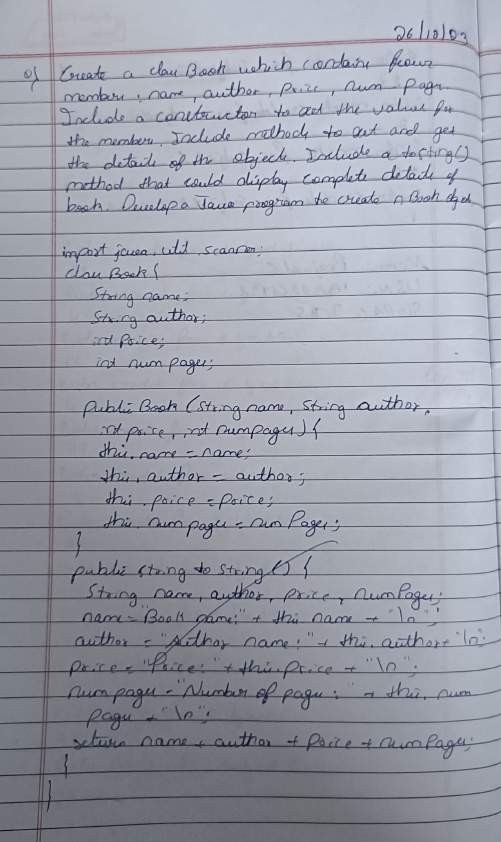 26/10/03
Q) Create a class Book which contains four
members: name, author, price, num_pages.
Include a constructor to set the values for
the members. Include methods to set and get
the details of the objects. Include a toString()
method that could display complete details of
book. Develop a Java program to create n Book
import java.util.scanner;
class Book {
String name;
String author;
int price;
int numpages;
public Book (String name, String author,
int price, int numpages) {
this.name = name;
this.author = author;
this.price = price;
this.numpages = numPages;
}
public string to string () {
String name, author, price, numPages;
name = "Book name:" + this name + "\n";
author = "Author name:" + this.author + "\n";
price = "Price:" + this.price + "\n";
numpages = "Number of pages:" + this.num
pages + "\n";
return name + author + price + numPages;
}
}